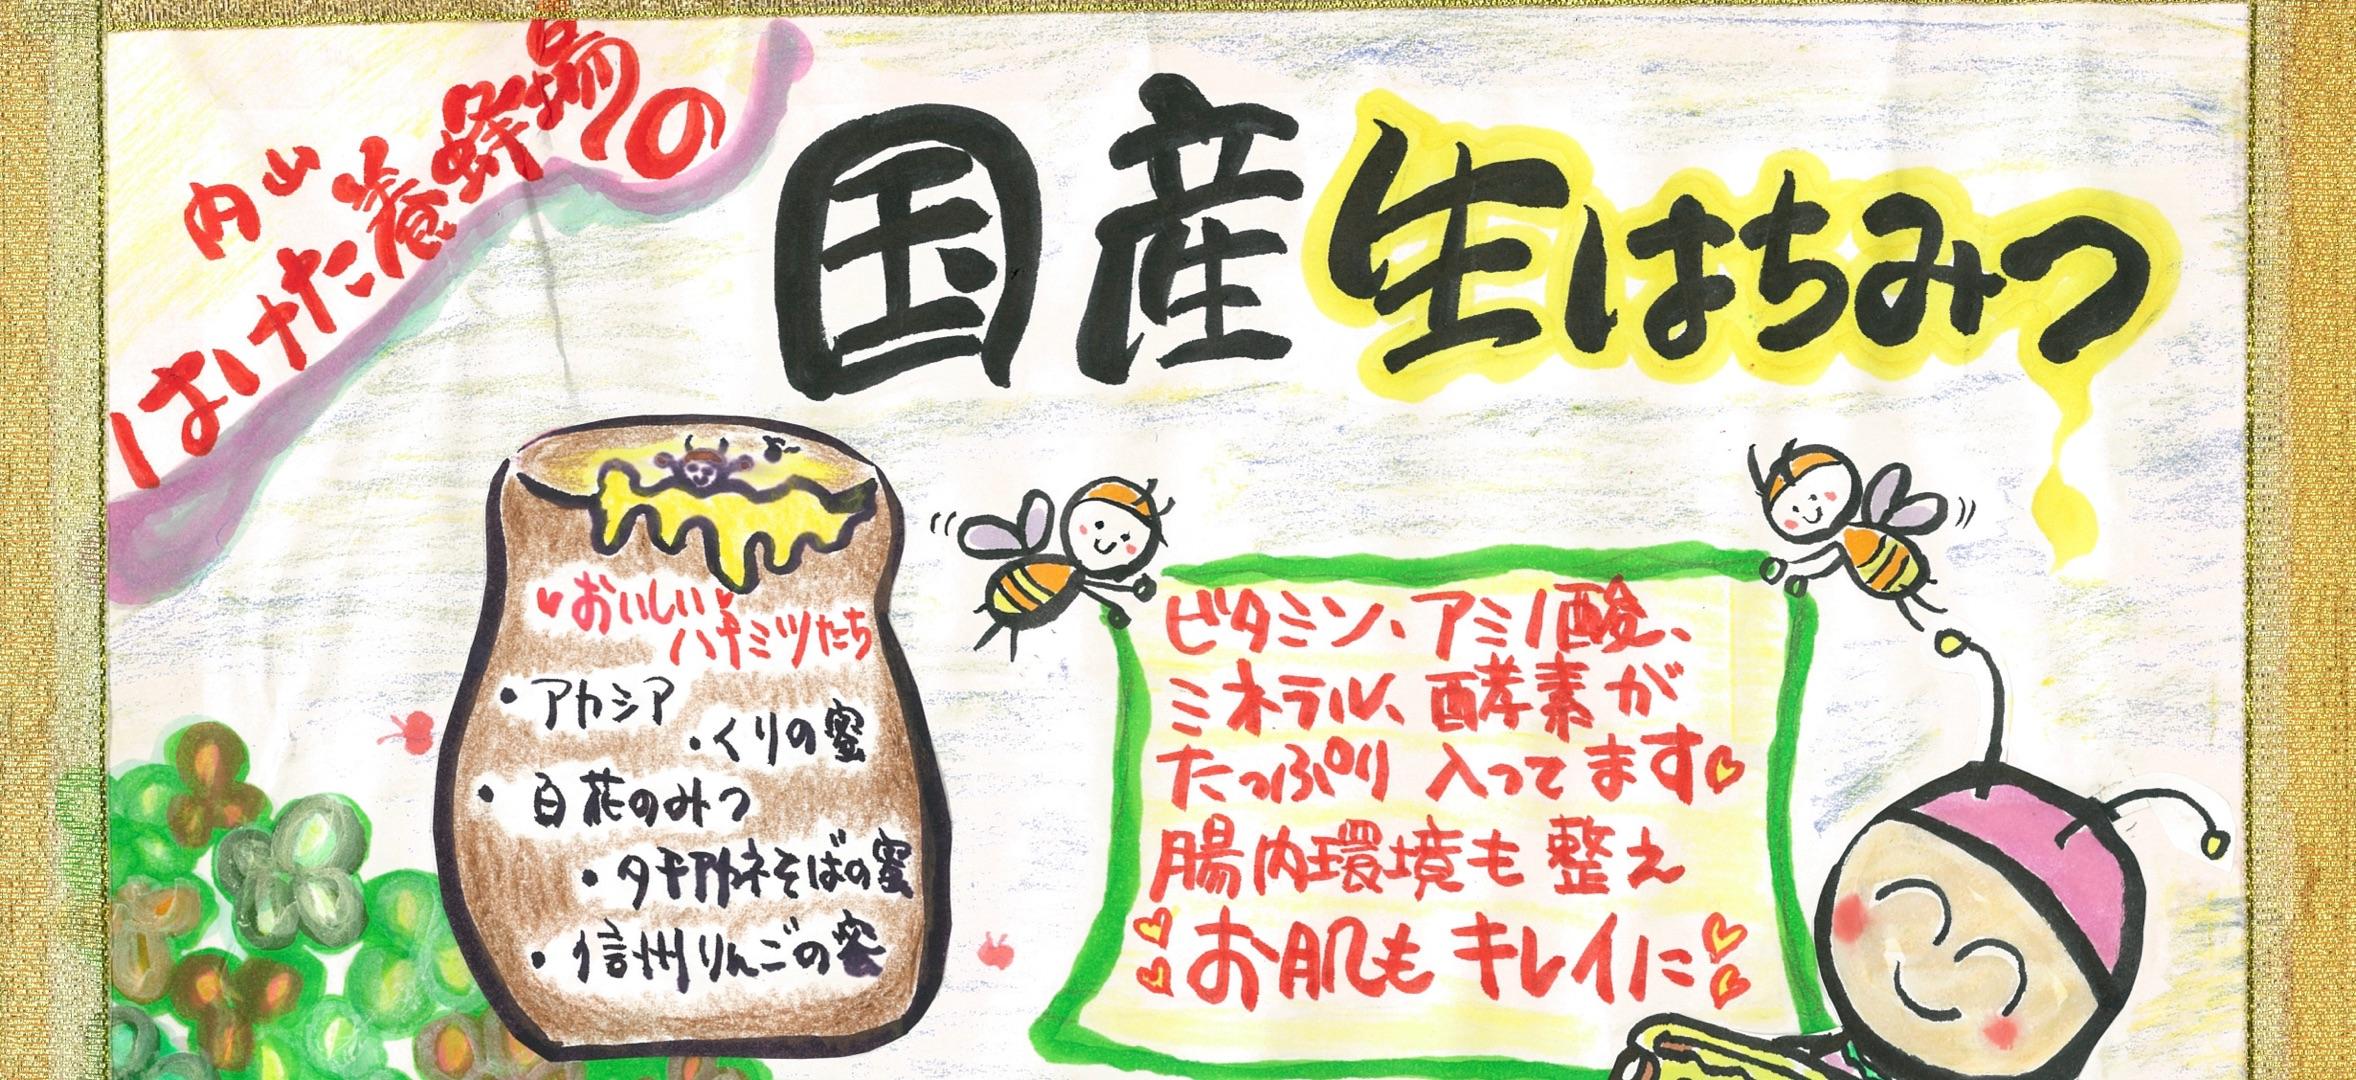 内山
はけた養蜂場の
国産生はちみつ
おいしい
ハチミツたち
・アカシア
・くりの蜜
・百花のみつ
そばの蜜
・信州りんごの蜜
ビタミン、アミノ酸、
ミネラル、酵素が
たっぷり入ってます
腸内環境も整え
お肌もキレイに